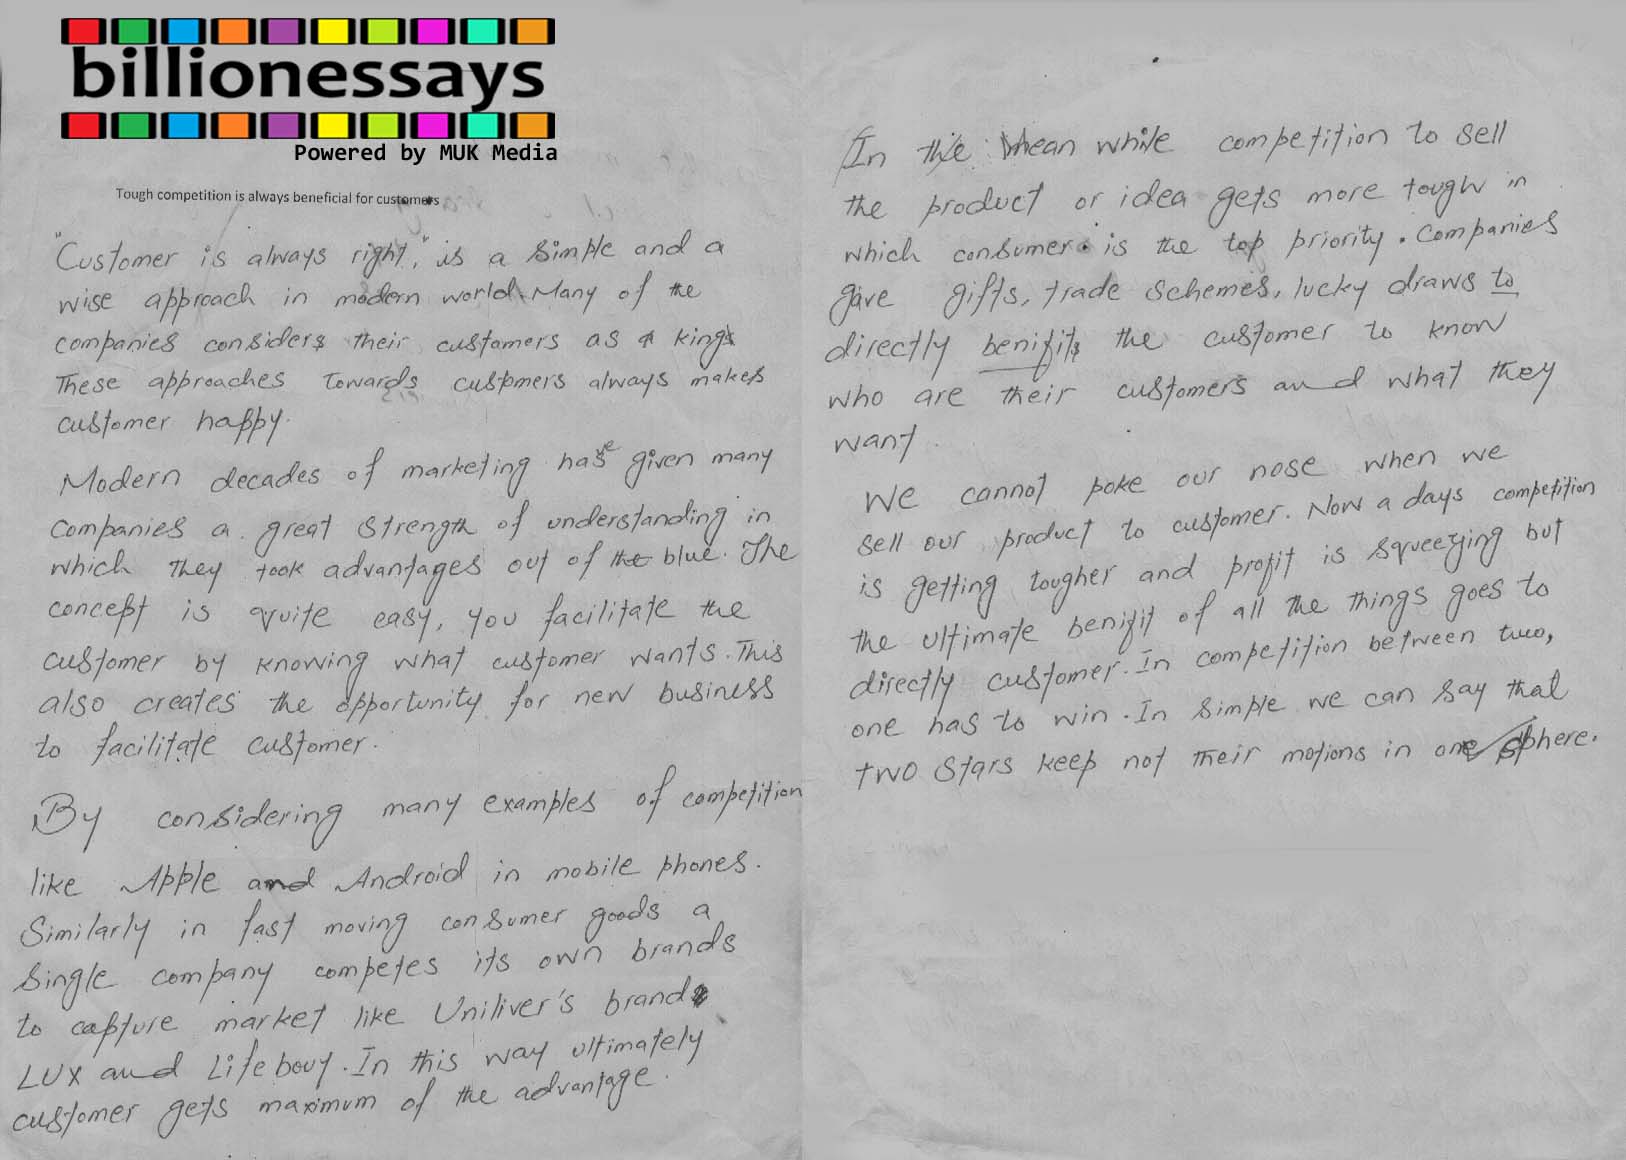 billionessays
Powered by MUK Media
Tough competition is always beneficial for customers
"Customer is always right," is a simple and a
wise approach in modern world. Many of the
companies considers their customers as a king
These approaches towards customers always makes
customer happy.
Modern decades of marketing have given many
companies a great strength of understanding in
which they took advantages out of the blue. The
concept is quite easy, you facilitate the
customer by knowing what customer wants. This
also creates the opportunity for new business
to facilitate customer.
By considering many examples of competition
like Apple and Android in mobile phones.
Similarly in fast moving consumer goods a
single company competes its own brands
to capture market like Uniliver's brand
LUX and Lifebouy. In this way ultimately
customer gets maximum of the advantage.
In the mean while competition to sell
the product or idea gets more tough in
which consumer is the top priority. Companies
gave gifts, trade schemes, lucky draws to
directly benifits the customer to know
who are their customers and what they
want.
We cannot poke our nose when we
sell our product to customer. Now a days competition
is getting tougher and profit is squeezing but
the ultimate benifit of all the things goes to
directly customer. In competition between two,
one has to win. In simple we can say that
two stars keep not their motions in one sphere.